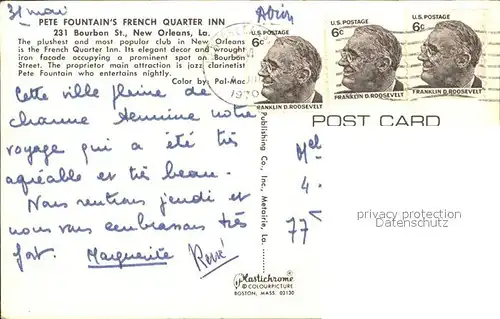 31 mai
PETE FOUNTAIN'S FRENCH QUARTER INN
231 Bourbon St., New Orleans, La.
The plushest and most popular club in New Orleans
is the French Quarter Inn. Its elegant decor and wrought
iron facade occupying a prominent spot on Bourbon
Street. The proprietor main attraction is jazz clarinetist
Pete Fountain who entertains nightly.
Color by Pal-Mac
Avion
1970
U.S. POSTAGE
6c
FRANKLIN D. ROOSEVELT
U.S. POSTAGE
6c
FRANKLIN D. ROOSEVELT
U.S. POSTAGE
6c
FRANKLIN D. ROOSEVELT
POST CARD
Cette ville pleine de
charme termine notre
voyage qui a été très
agréable et très beau.
Nous rentrons jeudi et
nous vous embrassons très
fort. Marguerite René
Publishing Co., Inc., Metairie, La.
Mel
4
77
privacy protection
Datenschutz
Plastichrome
COLOURPICTURE
BOSTON, MASS. 02130